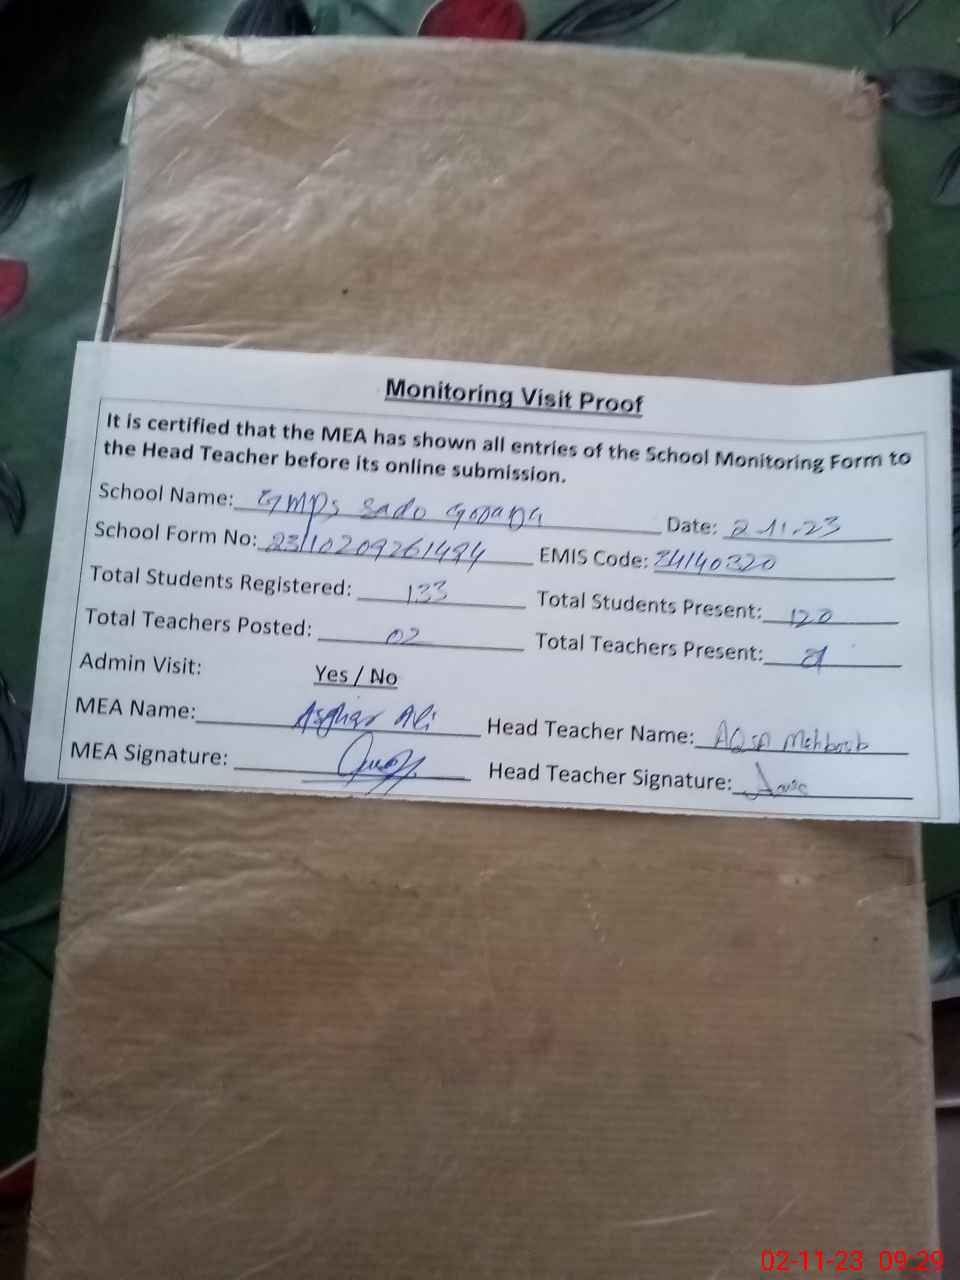 Monitoring Visit Proof
It is certified that the MEA has shown all entries of the School Monitoring Form to
the Head Teacher before its online submission.
School Name: GMPS Sado Goraya Date: 2.11.23
School Form No: 23110209261494 EMIS Code: 34140320
Total Students Registered: 133 Total Students Present: 120
Total Teachers Posted: 02 Total Teachers Present:
Admin Visit: Yes / No
MEA Name: Asghar Ali Head Teacher Name: AQsa Mehboob
MEA Signature: Head Teacher Signature:
02-11-23 09:29